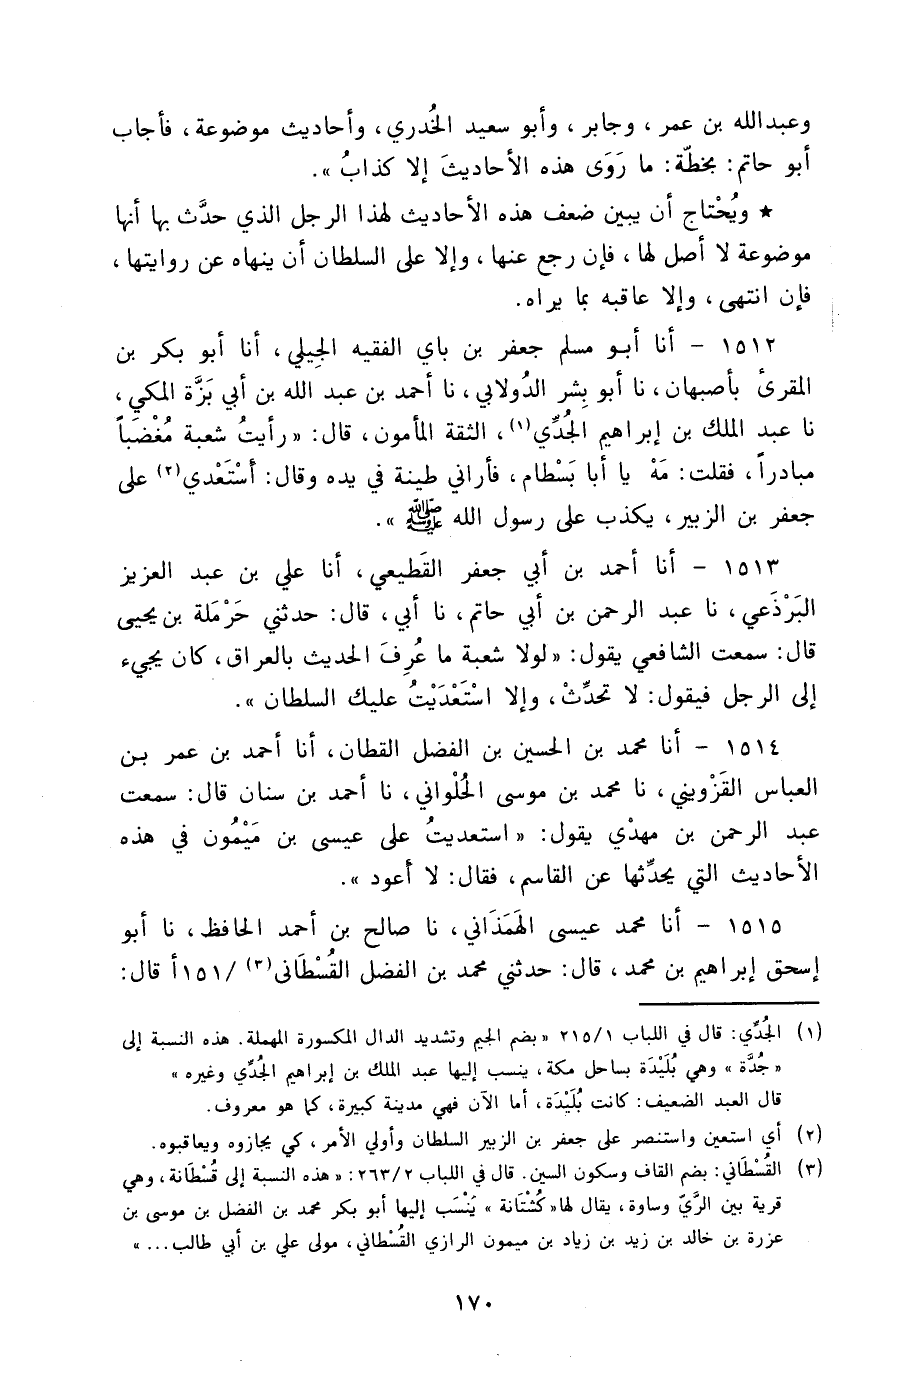 وعبدالله بن عمر ، وجابر ، وأبو سعيد الخُدري ، وأحاديث موضوعة ، فأجاب
أبو حاتم : بخطّة : ما رَوَى هذه الأحاديثَ إلا كذابُ » .
★ ويُحْتاج أن يبين ضعف هذه الأحاديث لهذا الرجل الذي حدَّث بها أنها
موضوعة لا أصل لها ، فإن رجع عنها ، وإلا على السلطان أن ينهاه عن روايتها ،
فإن انتهى ، وإلا عاقبه بما يراه .
١٥١٢ - أنا أبو مسلم جعفر بن باي الفقيه الجِيلي ، أنا أبو بكر بن
المقرئ بأصبهان ، نا أبو بِشر الدُولابي ، نا أحمد بن عبد الله بن أبي بَزَّة المكي ،
نا عبد الملك بن إبراهيم الجُدِّي (١) ، الثقة المأمون ، قال : « رأيتُ شعبة مغْضَباً
مبادراً ، فقلت : مَهْ يا أبا بَسْطام ، فأراني طينة في يده وقال : أسْتَعْدي (٢) على
جعفر بن الزبير ، يكذب على رسول الله ﷺ » .
١٥١٣ - أنا أحمد بن أبي جعفر القَطيعي ، أنا علي بن عبد العزيز
البَرْذَعي ، نا عبد الرحمن بن أبي حاتم ، نا أبي ، قال : حدثني حَرْمَلة بن يحيى
قال : سمعت الشافعي يقول : « لولا شعبة ما عُرِفَ الحديث بالعراق ، كان يجيء
إلى الرجل فيقول : لا تحدِّثْ ، وإلا اسْتَعْدَيْتُ عليك السلطان » .
١٥١٤ - أنا محمد بن الحسين بن الفضل القطان ، أنا أحمد بن عمر بن
العباس القَزْويني ، نا محمد بن موسى الحُلْواني ، نا أحمد بن سنان قال : سمعت
عبد الرحمن بن مهدْي يقول : « استعديتُ على عيسى بن مَيْمُون في هذه
الأحاديث التي يحدِّثها عن القاسم ، فقال : لا أعود » .
١٥١٥ - أنا محمد عيسى الهَمَذَاني ، نا صالح بن أحمد الحافظ ، نا أبو
إسحق إبراهيم بن محمد ، قال : حدثني محمد بن الفضل القُسْطَانى (٣) /١٥١أ قال :
(١) الجُدِّي : قال في اللباب ٢١٥/١ « بضم الجيم وتشديد الدال المكسورة المهملة . هذه النسبة إلى
« جُدَّة » وهي بُلَيْدَة بساحل مكة ، ينسب إليها عبد الملك بن إبراهيم الجُدِّي وغيره »
قال العبد الضعيف : كانت بُلَيْدَة ، أما الآن فهي مدينة كبيرة ، كما هو معروف .
(٢) أي استعين واستنصر على جعفر بن الزبير السلطان وأولي الأمر ، كي يجازوه ويعاقبوه .
(٣) القُسْطَاني : بضم القاف وسكون السين . قال في اللباب ٢٦٣/٢ : « هذه النسبة إلى قُسْطَانة ، وهي
قرية بين الرَّيّ وساوة ، يقال لها « كُشْتَانة » يَنْسَب إليها أبو بكر محمد بن الفضل بن موسى بن
عزرة بن خالد بن زيد بن زياد بن ميمون الرازي القُسْطاني ، مولى علي بن أبي طالب ... »
١٧٠